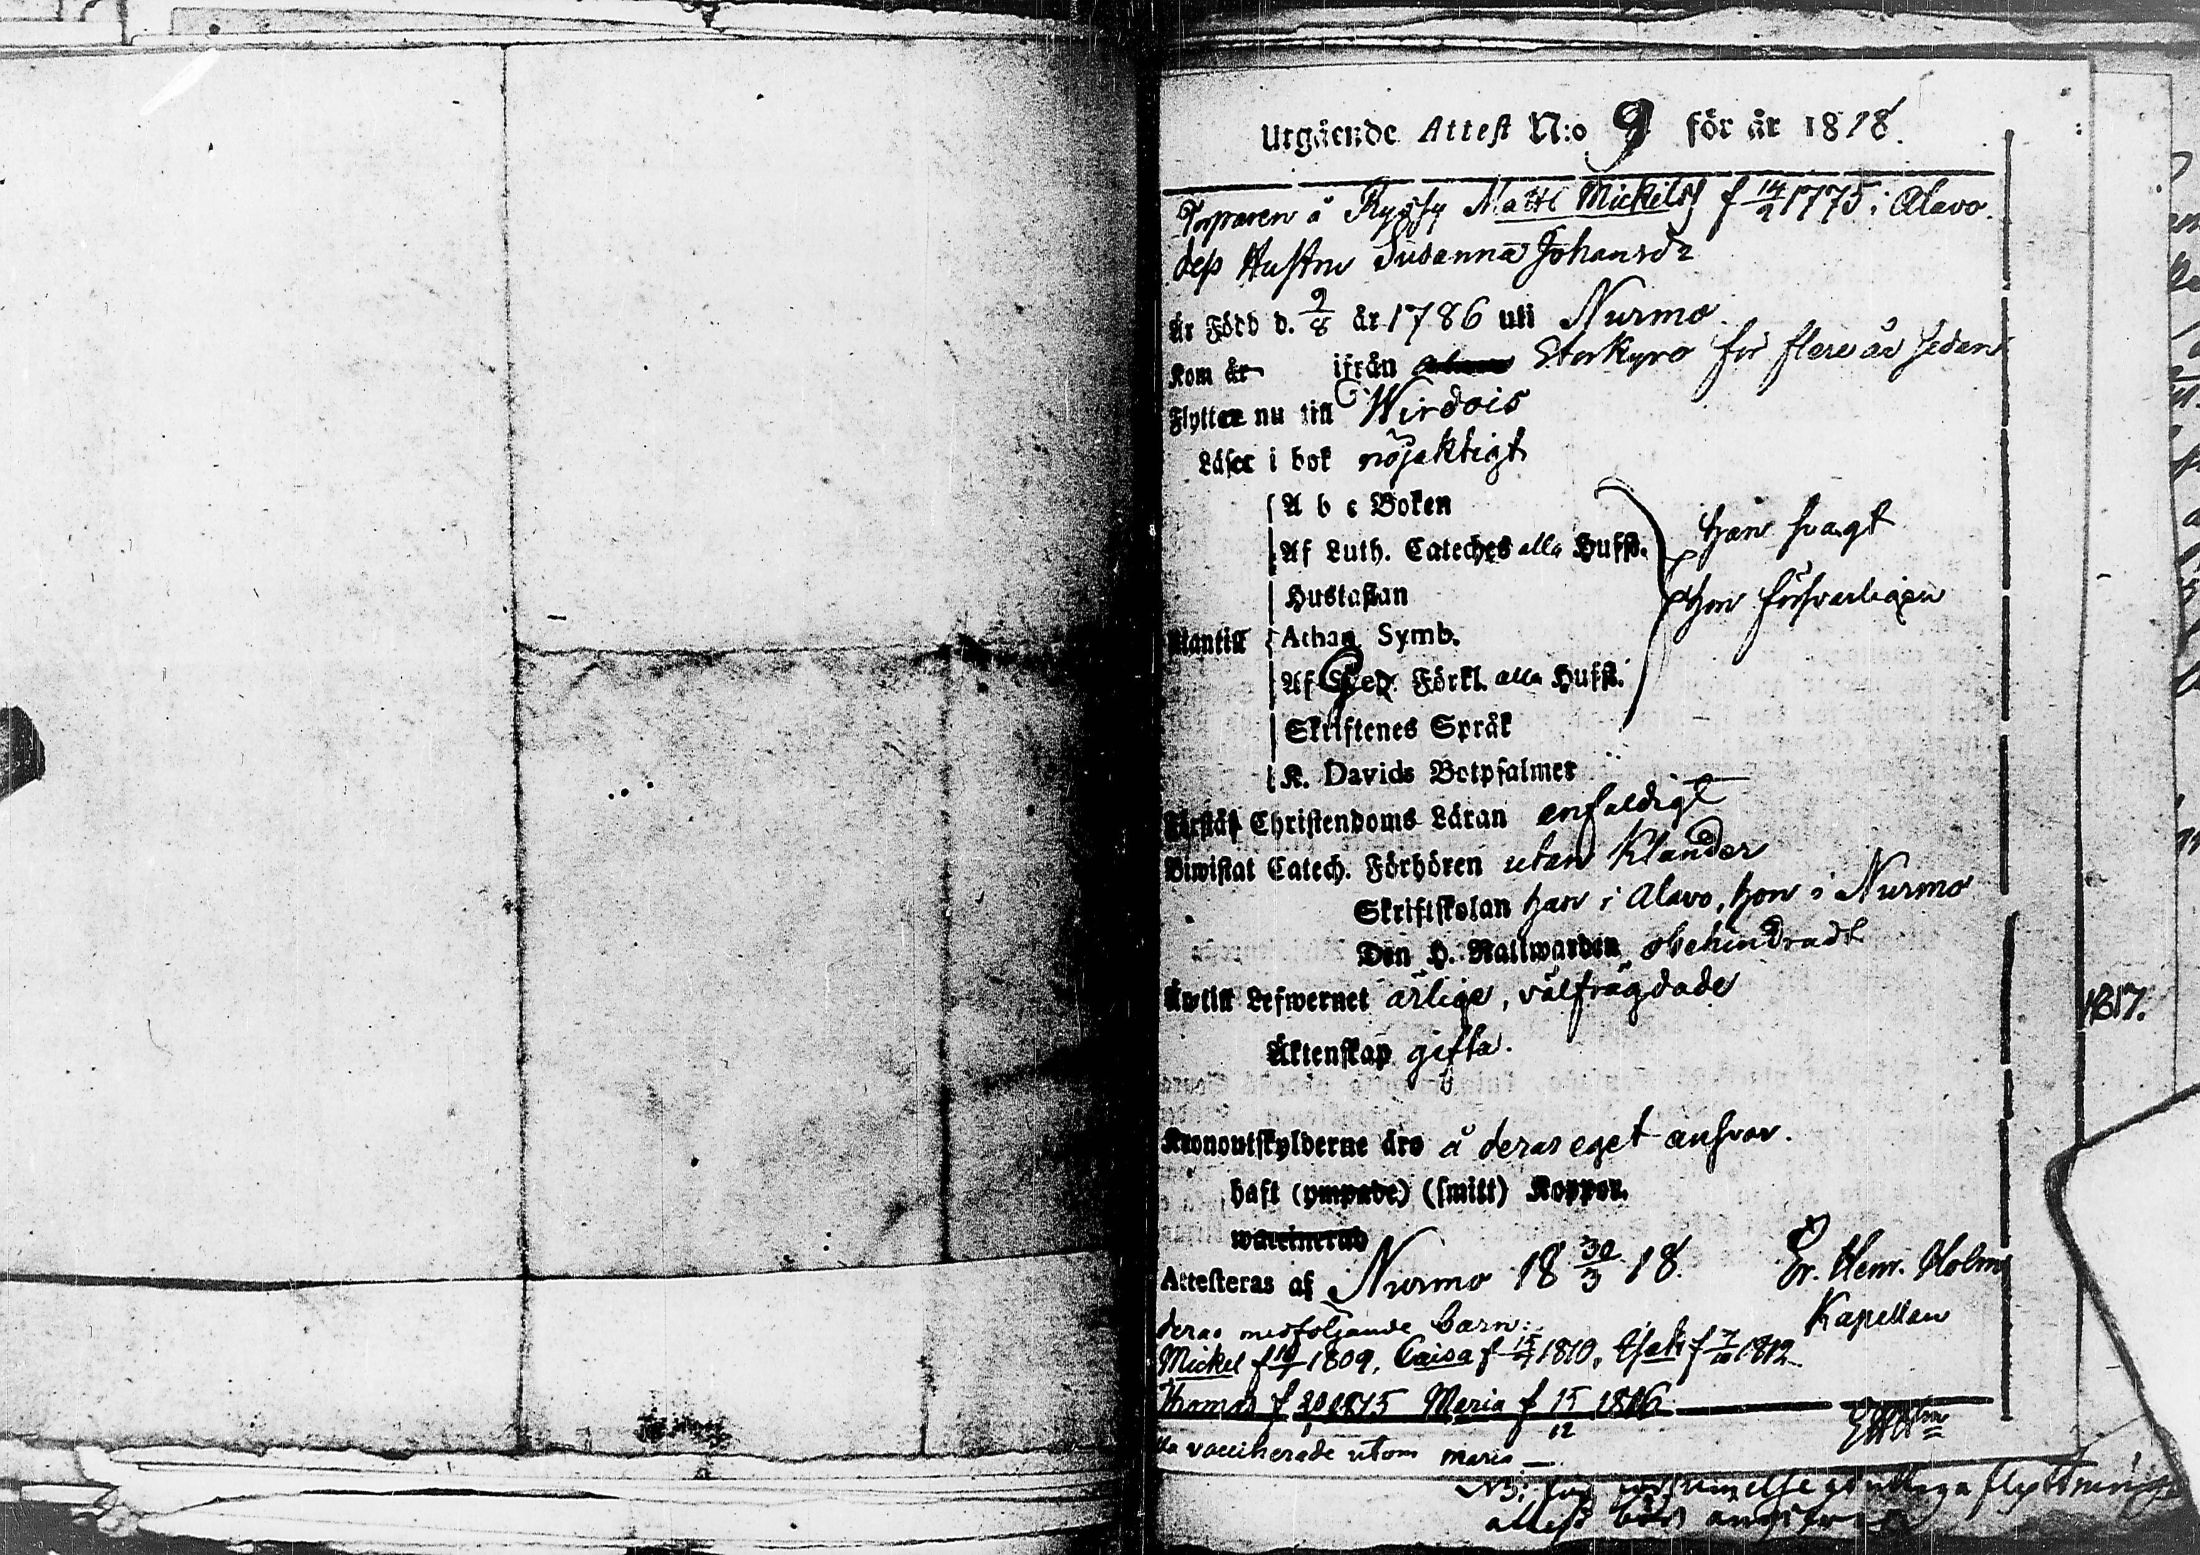 Utgående Attest N:o 9 för år 1818.
Torparen å Matts Mickelss f 14/2 1775 i Alavo.
dess Hustru Susanna Johansdr
Är Född d. 9/8 år 1786 uti Nurmo
Kom år ifrån Storkyro för flere år sedan
Flyttar nu till Wirdois
Läser i bok nöjaktigt
A b c Boken
Af Luth. Cateches alla Hufst.
han svagt
Hustaflan
hon försvarligen
Kantill Athan. Symb.
Af Förkl. alla Hufst.
Skriftenes Språk
K. Davids Botpsalmer
Förstår Christendoms Läran enfaldigt
Biwistat Catech. Förhören utan klander
Skriftskolan han i Alavo, hon i Nurmo
Den H. Nattwarden obehindradt
Intill Lefwernet ärlige, välfrägdade
Äktenskap gifta.
Kronoutskylderne äro å deras eget ansvar.
haft (ympade) (smitt) Koppor.
waccinerad
Attesteras af Nurmo 18 30/3 18. Er. Henr. Holm
Kapellan
deras medföljande barn:
Mickel f 1809, Caisa f 1810, Isak f 1812
Thomas f 1815 Maria f 15/12 1816
vaccinerade utom maria
1817.
NB: flyttnings
attest